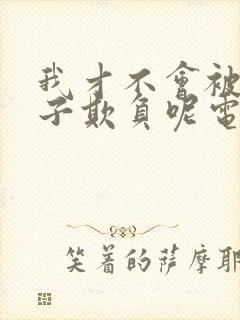 我才不會被
子欺負呢電
笑着的薩摩耶